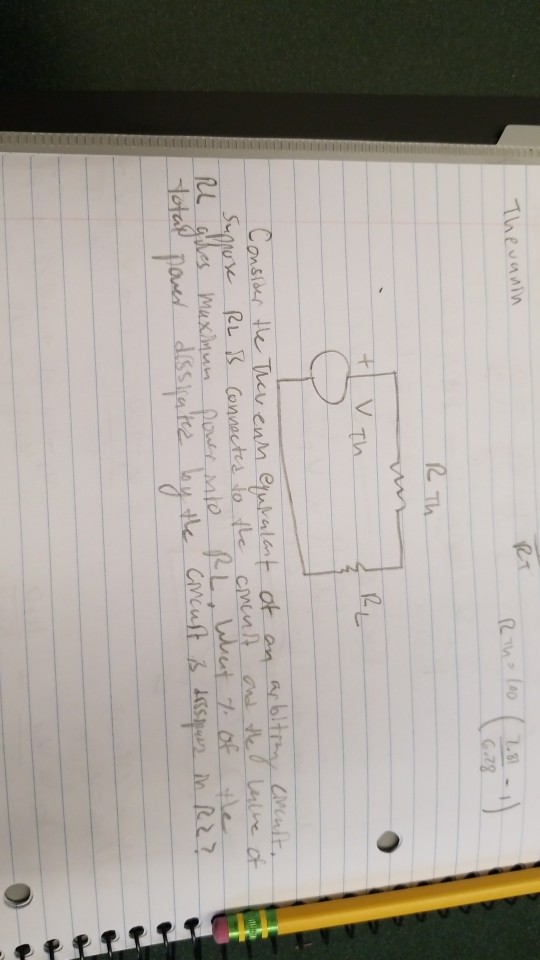 Thevanin
RT
RTh = 100 (7.81 / 6.28 - 1)
RTh
+
VTh
RL
Consider the Thevenin equivalent of an arbitrary circuit.
Suppose RL is connected to the circuit and the value of
RL gives maximum power into RL. What % of the
total power dissipated by the circuit is in RL?